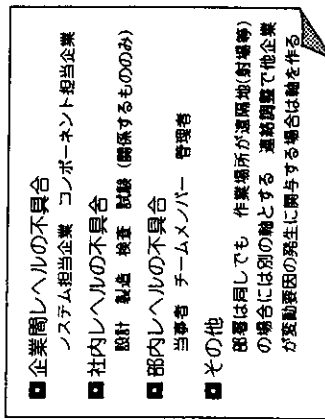 ■ 企業間レベルの不具合
システム担当企業 コンポーネント担当企業
■ 社内レベルの不具合
設計 製造 検査 試験 (関係するもののみ)
■ 部内レベルの不具合
当事者 チームメンバー 管理者
■ その他
部署は同じでも 作業場所が遠隔地(射場等)
の場合には別の軸とする 連絡調整で他企業
が変動要因の発生に関与する場合は軸を作る